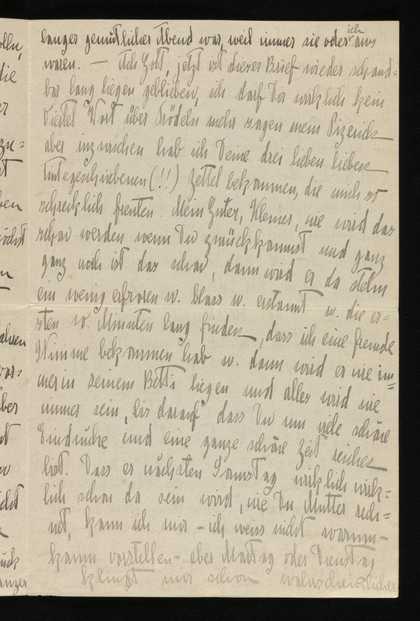 langer gemütlicher Abend war, weil immer sie oder ich aus
waren. — Ach Gott, jetzt ist dieser Brief wieder schand-
bar lang liegen geblieben, ich darf Dir wirklich kein
Wort über Trödeln mehr sagen mein
aber inzwischen hab ich Deine drei lieben lieben
tintegeschriebenen (!!) Zettel bekommen, die mich so
schrecklich freuten. Mein Guter, Kleiner, wie wird das
schön werden wenn Du zurückkommst und ganz
ganz noch ist das schön, dann wird er da stehn
ein wenig erfroren u. blass u. erstaunt u. die er-
sten 10 Minuten lang finden, dass ich eine fremde
Stimme bekommen hab u. dann wird er wie im-
mer in seinem Betti liegen und alles wird wie
immer sein, bis darauf dass Du um viele schöne
Eindrücke und eine ganze schöne Zeit reicher
bist. Dass er nächsten Samstag wirklich wirk-
lich schon da sein wird, wie Du Mutter rech-
net, kann ich mir – ich weiss nicht warum –
kaum vorstellen – aber Montag oder Dienstag
klingt mir schon wahrscheinlicher